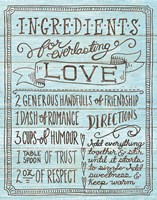 INGREDIENTS
for everlasting
LOVE
2 GENEROUS HANDFULS of FRIENDSHIP
1 DASH of ROMANCE
3 CUPS of HUMOUR
1 TABLE SPOON OF TRUST
2 OZ OF RESPECT
DIRECTIONS
Add everything
together & stir
until it starts
to simple Add
sweetness &
keep warm